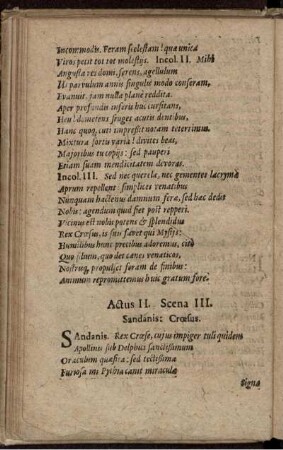 Incommodis. Feram scelestam! quæ unica
Viros petit tot tot molestijs. Incol. II. Mihi
Angusta res domi, serens, agellulum
Ut parvulum annis singulis modo conseram,
Evanuit. jam nulla planè reddita.
Aper profundis inferis huc cursitans,
Heu! demetens fruges acutis dentibus,
Hanc quoq; cuti impressit notam teterrimam.
Mixtura fortis varia! divites beas,
Majoribus tu copijs: sed pauperi
Etiam suam mendicitatem devoras.
Incol. III. Sed nec querela, nec gementes lacrymæ
Aprum repellent: simplices venatibus
Nunquam hactenus damnum feræ, sed hac dedit
Nobis: agendum quid siet post repperi.
Vicinus est nobis potens & splendidus
Rex Crœsus, is sui favet qui Mysijs:
Humilibus hunc precibus adoremus, citò
Quo filium, quo det canes venaticos,
Nostrum, propulset feram de finibus:
Animum repromittemus huic gratum fore.
Actus II. Scena III.
Sandanis: Crœsus.
SAndanis. Rex Crœse, cujus impiger tuli quidem
Apollinis sub Delphus sanctissimum
Oraculum quæsita: sed tectissima
Furiosa mi Pythia canit miracula
Signa